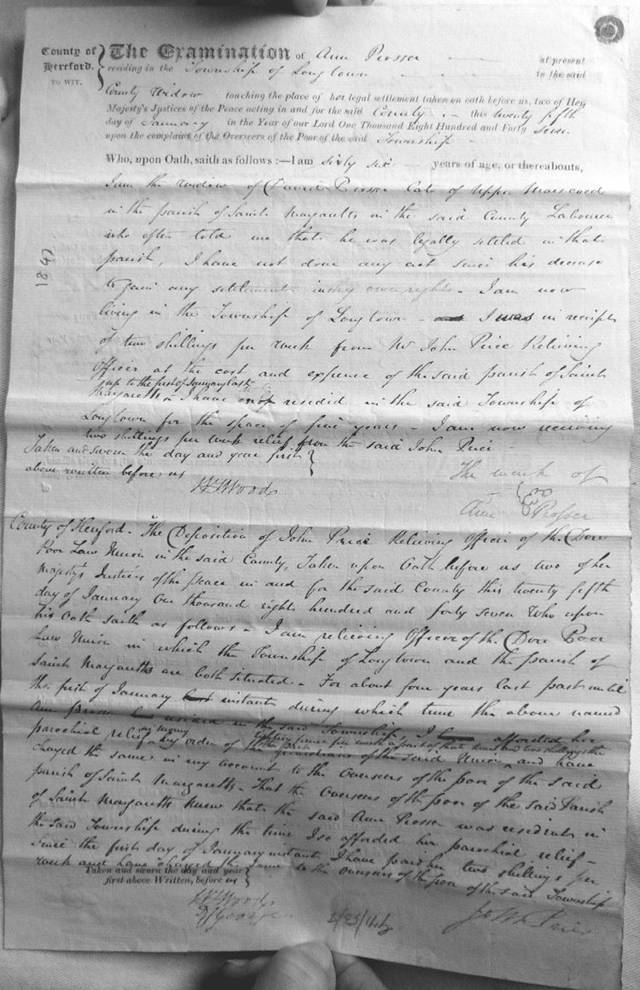 County of Hereford. TO WIT.
The Examination of Ann Prosser at present
residing in the Township of Longtown in the said
County Widow touching the place of her legal settlement taken on oath before us, two of Her
Majesty's Justices of the Peace acting in and for the said County this twenty fifth
day of January in the Year of our Lord One Thousand Eight Hundred and Forty Seven
upon the complaint of the Overseers of the Poor of the said Township
Who, upon Oath, saith as follows :—I am sixty six years of age, or thereabouts,
I am the widow of David Prosser late of Upper
in the parish of Saint Margaretts in the said County Labourer
who often told me that he was legally settled in that
parish, I have not done any act since his decease
to gain any settlement in my own right - I am now
living in the Township of Longtown - I was in receipt
of two shillings per week from Mr John Price Relieving
Officer at the cost and expence of the said parish of Saint
up to the first of January last
Margaretts - I have resided in the said Township of
Longtown for the space of five years - I am now receiving
two shillings per week relief from the said John Price
1847
Taken and sworn the day and year first
above written before us
The mark of
Ann Prosser
County of Hereford - The Deposition of John Price Relieving Officer of the Dore
Poor Law Union in the said County, Taken upon Oath before us two of her
Majesty's Justices of the peace in and for the said County this twenty fifth
day of January One thousand eight hundred and forty seven Who upon
his Oath saith as follows - I am relieving Officer of the Dore Poor
Law Union in which the Township of Longtown and the parish of
Saint Margaretts are both situated - For about four years last past until
the first of January instant during which time the above named
Ann Prosser resided in the said Township, I afforded her
parochial relief by order of the Guardians of the said Union and have
charged the same in my account to the Overseers of the poor of the said
parish of Saint Margaretts - That the Overseers of the poor of the said Parish
of Saint Margaretts knew that the said Ann Prosser was resident in
the said Township during the time I so afforded her parochial relief -
since the first day of January instant I have paid her two shillings per
week and have charged the same to the overseers of the poor of the said Township
Taken and sworn the day and year
first above Written, before us